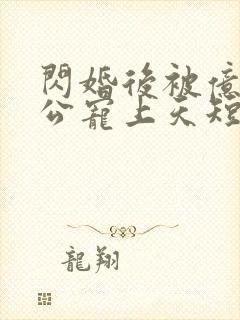 閃婚後被億
公寵上天短
龍翔